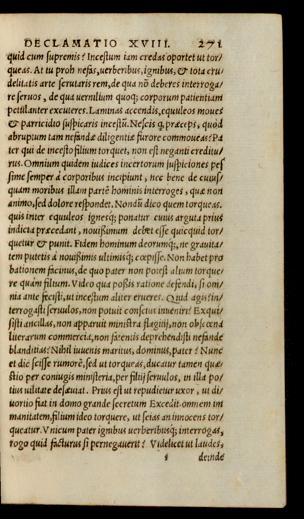 DECLAMATIO XVIII. 271
quid cum supremis? Incestum tam credas oportet ut tor/
queas. At tu proh nefas, uerberibus, ignibus, & tota cru/
delitatis arte scrutaris rem, de qua nõ deberes interroga/
re seruos, de qua uernilium quoq; corporum patientiam
petulanter excuteres. Laminas accendis, equuleos moues
& parricidio suspicaris incestũ. Nescis q̃ præceps, quòd
abruptum tam nefandæ diligentiæ furore commoueas? Pa
ter qui de incesto filium torquet, non est neganti creditu/
rus. Omnium quidem iudices incertorum suspiciones pes
sime semper à corporibus incipiunt, nec bene de cuius/
quam moribus illam partẽ hominis interroges, quæ non
animo, sed dolore respondet. Nondũ dico quem torqueas.
quis inter equuleos ignesq; ponatur cuius arguta prius
indicta præcedant, nouißimum debet esse quicquid tor/
quetur & punit. Fidem hominum deorumq;, ne grauita/
tem putetis à nouißimis ultimisq; cœpisse. Non habet pro
bationem facinus, de quo pater non potest alium torque/
re quàm filium. Video qua poßis ratione defendi, si om/
nia ante fecisti, ut incestum aliter erueres. Quid agis? in/
terrogasti seruulos, non potuit consciꝰ inueniri? Exqui/
sisti ancillas, non apparuit ministra flagitij, non obscœna
literarum commercia, non fatentis deprehendisti nefandæ
blanditias? Nihil iuuenis maritus, dominus, pater? Nunc
et diē scisse rumorē, sed ut torqueas, ducatur tamen quæ/
stio per coniugis ministeria, per filij seruulos, in illa po/
tius uilitate desæuiat. Prius est ut repudietur uxor, ut di/
uortio fiat in domo grande secretum Excedit omnem im
manitatem, filium ideo torquere, ut scias an innocens tor/
queatur. Vnicum pater ignibus uerberibusq; interrogas,
rogo quid facturus si pernegauerit? Videlicet ut laudes,
deinde